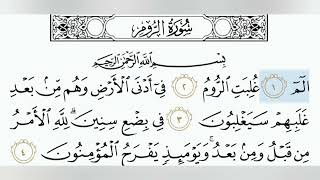 سُورَةُ الرُّومِ
بِسْمِ اللَّهِ الرَّحْمَٰنِ الرَّحِيمِ
الٓمٓ ١ غُلِبَتِ الرُّومُ ٢ فِىٓ أَدْنَى الْأَرْضِ وَهُم مِّنۢ بَعْدِ
غَلَبِهِمْ سَيَغْلِبُونَ ٣ فِى بِضْعِ سِنِينَ ۗ لِلَّهِ الْأَمْرُ
مِن قَبْلُ وَمِنۢ بَعْدُ ۚ وَيَوْمَئِذٍ يَفْرَحُ الْمُؤْمِنُونَ ٤